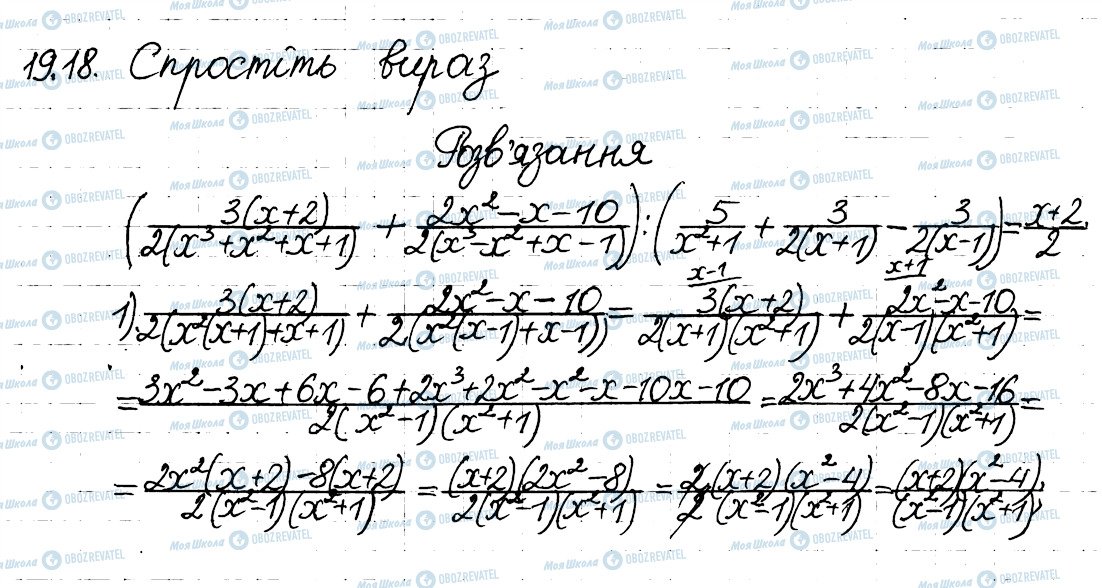 19.18. Спростіть вираз
Розв'язання
(3(x+2)/2(x³+x²+x+1) + 2x²-x-10/2(x³-x²+x-1)) : (5/x²+1 + 3/2(x+1) - 3/2(x-1)) = x+2/2.
x-1 x+1
1). 3(x+2)/2(x²(x+1)+x+1) + 2x²-x-10/2(x²(x-1)+x-1)) = 3(x+2)/2(x+1)(x²+1) + 2x²-x-10/2(x-1)(x²+1) =
= 3x²-3x+6x-6+2x³+2x²-x²-x-10x-10/2(x²-1)(x²+1) = 2x³+4x²-8x-16/2(x²-1)(x²+1) =
= 2x²(x+2)-8(x+2)/2(x²-1)(x²+1) = (x+2)(2x²-8)/2(x²-1)(x²+1) = 2(x+2)(x²-4)/2(x²-1)(x²+1) = (x+2)(x²-4)/(x²-1)(x²+1);